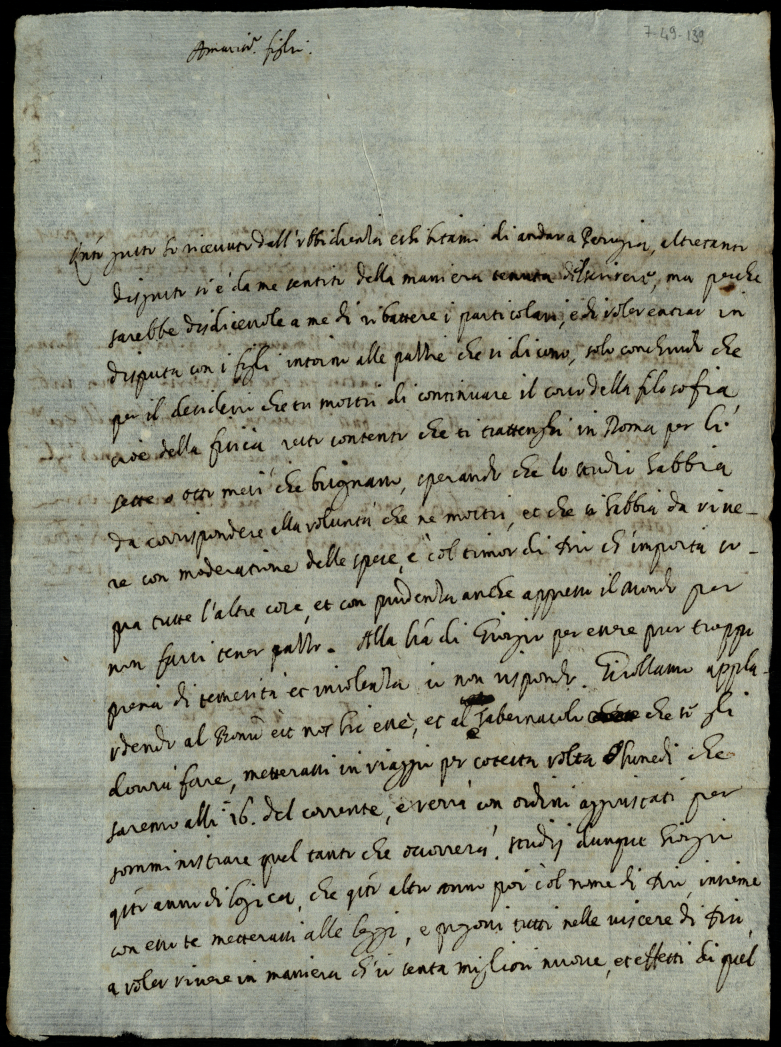 7-49-139
Amatis.mi figli.
Qnto gusto hò ricevuto dall'ubbidienza esibitami di andar à Perugia, altretanto
disgusto si è da me sentito della maniera tenuta di scrivere, ma perche
sarebbe disdicevole a me di ribattere i particolari, e di voler entrar in
disputa con i figli intorno alle pazzie che si dicono, solo conchiudo che
per il desiderio che tu mostri di continuare il corso della filosofia
cioè della fisica resto contento che ti trattenghi in Roma per li
sette o otto mesi che bisognano, sperando che lo studio habbia
da corrispondere alla voluntà che ne mostri, et che si habbia da vive-
re con moderatione delle spese, e col timor di Dio ch'importa so-
pra tutte l'altre cose, et con prudenza anche appresso il Mondo per
non farsi tener pazzo. Alla l'ra di Giorgio per essere pur troppo
piena di temerità et insolenza io non rispondo. Girollamo appla-
udendo al Bonũ est nos hic esse, et al Tabernacolo che si gli
dovrà fare, metterassi in viaggio per cotesta volta lunedi che
saremo alli 16. del corrente, e verrà con ordini aggiustati per
somministrare quel tanto che occorrerà. Studij dunque Giorgio
qsto anno di logica, che qsto altro anno poi col nome di Dio, insieme
con esso te metterassi alle leggi, e pregovi tutti nelle viscere di Dio
a voler vivere in maniera ch'io senta migliori nuove, et effetti di quel